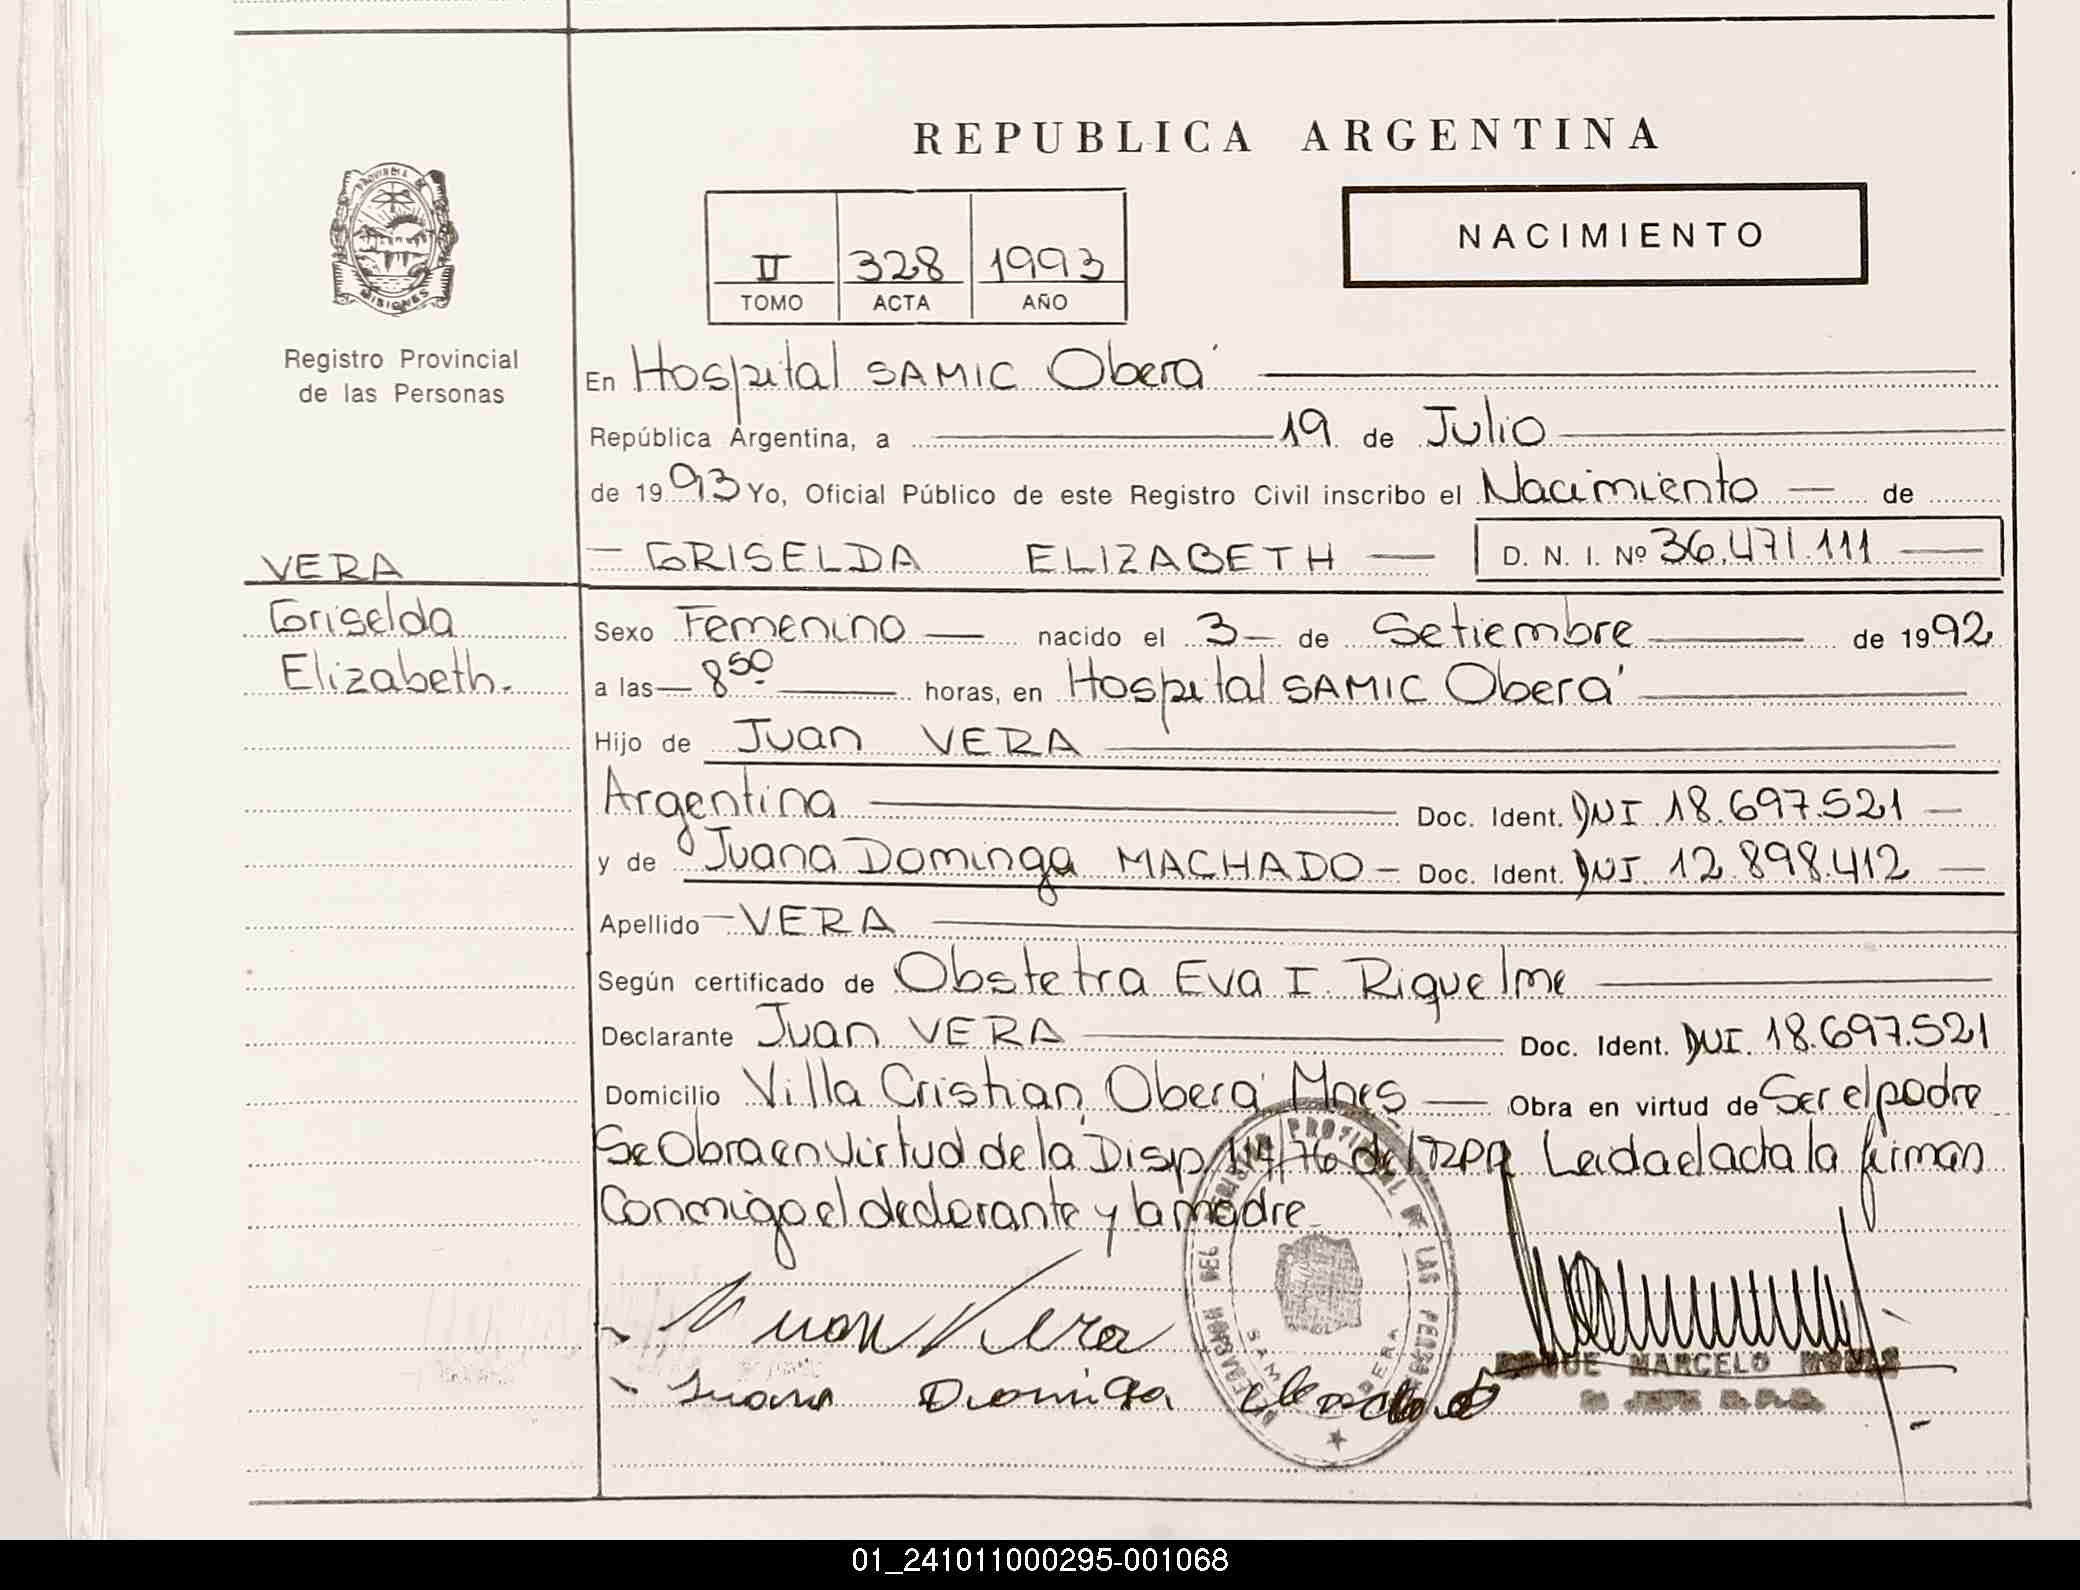 REPUBLICA ARGENTINA
PROVINCIA DE
MISIONES
Registro Provincial
de las Personas
II 328 1993
TOMO ACTA AÑO
NACIMIENTO
En Hospital SAMIC Oberá
República Argentina, a 19 de Julio
de 1993 Yo, Oficial Público de este Registro Civil inscribo el Nacimiento de
GRISELDA ELIZABETH D. N. I. Nº 36.471.111
VERA
Griselda
Elizabeth.
Sexo Femenino nacido el 3 de Setiembre de 1992
a las 8 50 horas, en Hospital SAMIC Oberá
Hijo de Juan VERA
Argentina Doc. Ident. DNI 18.697.521
y de Juana Dominga MACHADO Doc. Ident. DNI. 12.898.412
Apellido VERA
Según certificado de Obstetra Eva I. Riquelme
Declarante Juan VERA Doc. Ident. DNI. 18.697.521
Domicilio Villa Cristian, Oberá Mnes Obra en virtud de Ser el padre
Se Obra en Virtud de la Disp. 114/76 del RPP Leida el acta la firman
Conmigo el declarante y la madre
Juan Vera
Juana Dominga
DELEGACION DEL REGISTRO PROVINCIAL DE LAS PERSONAS
SAMIC OBERA
ROQUE MARCELO
01_241011000295-001068